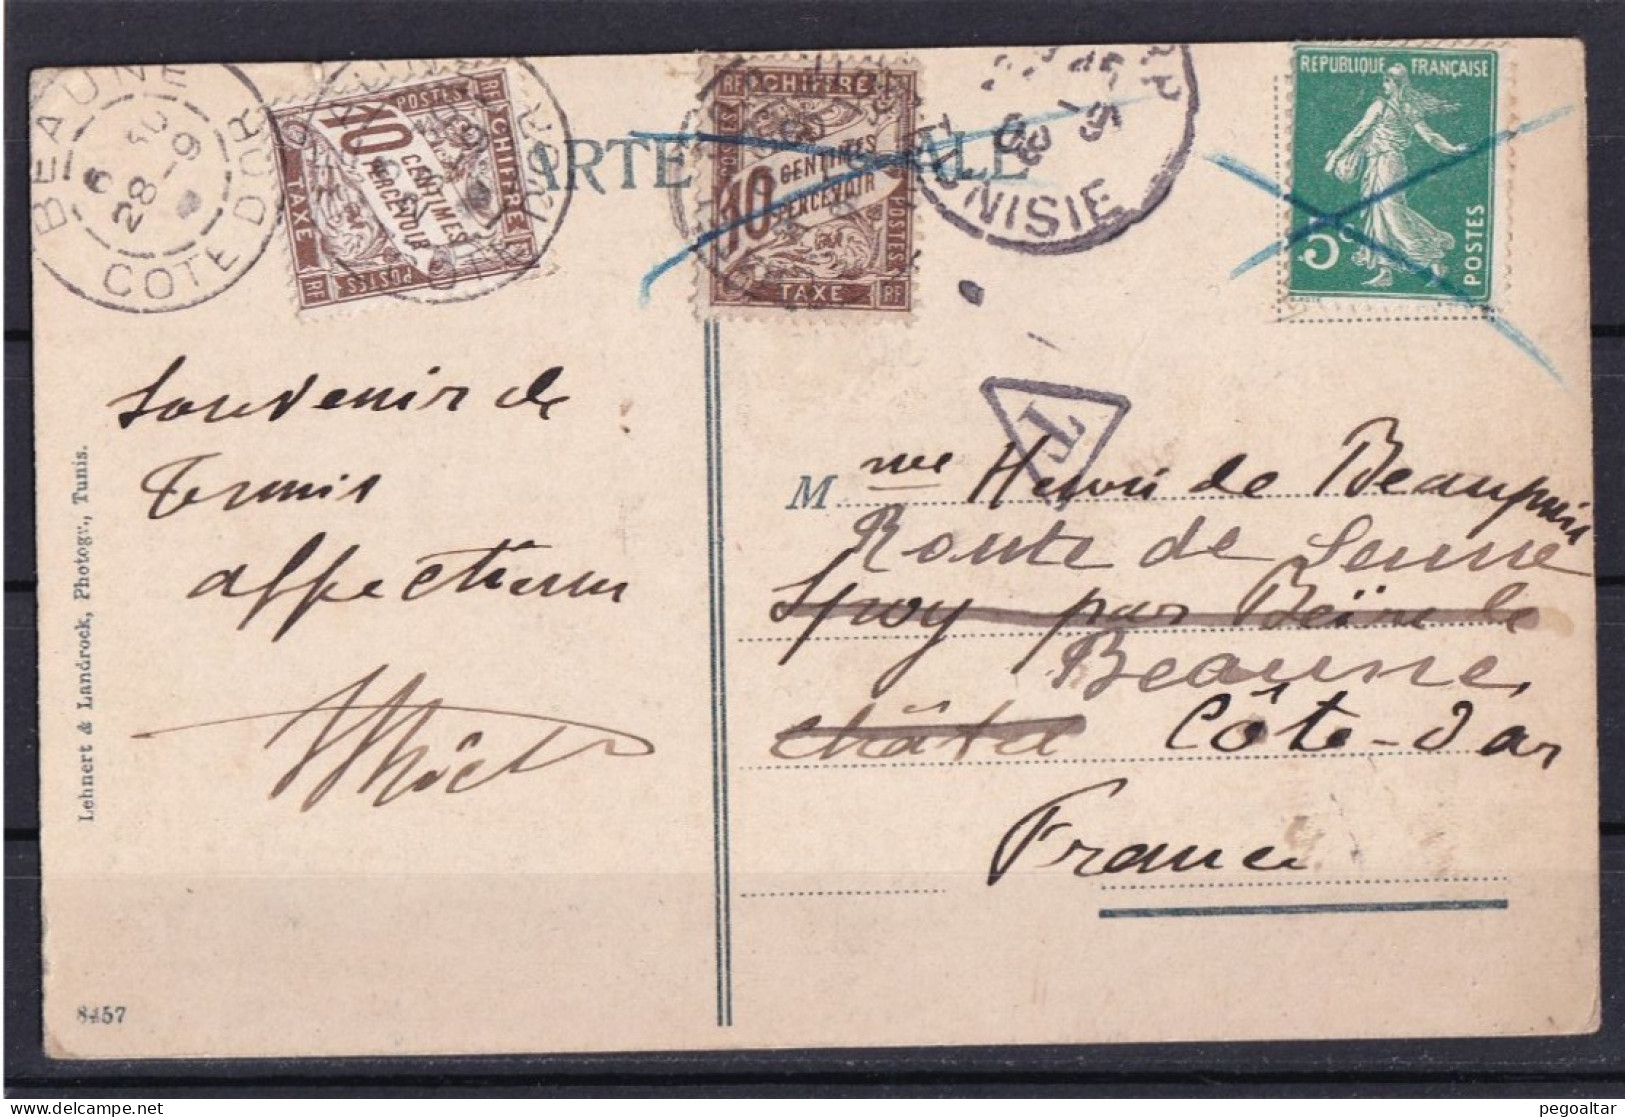 BEAUNE
28-9
COTE D'OR
POSTES RF
CHIFFRE
10
CENTIMES
PERCEVOIR
TAXE
RF POSTES
COTE D'OR
CARTE POSTALE
RF CHIFFRE
10
CENTIMES
PERCEVOIR
POSTES
TAXE RF
R.P
TUNISIE
RÉPUBLIQUE FRANÇAISE
5c
POSTES
T
Souvenir de
Tunis
affectueux
Mme Henri de Beaupuis
Route de Seurre
par
Beaune
Châtel Côte-d'or
France
Lehnert & Landrock, Photogr., Tunis.
8457
pegoaltar